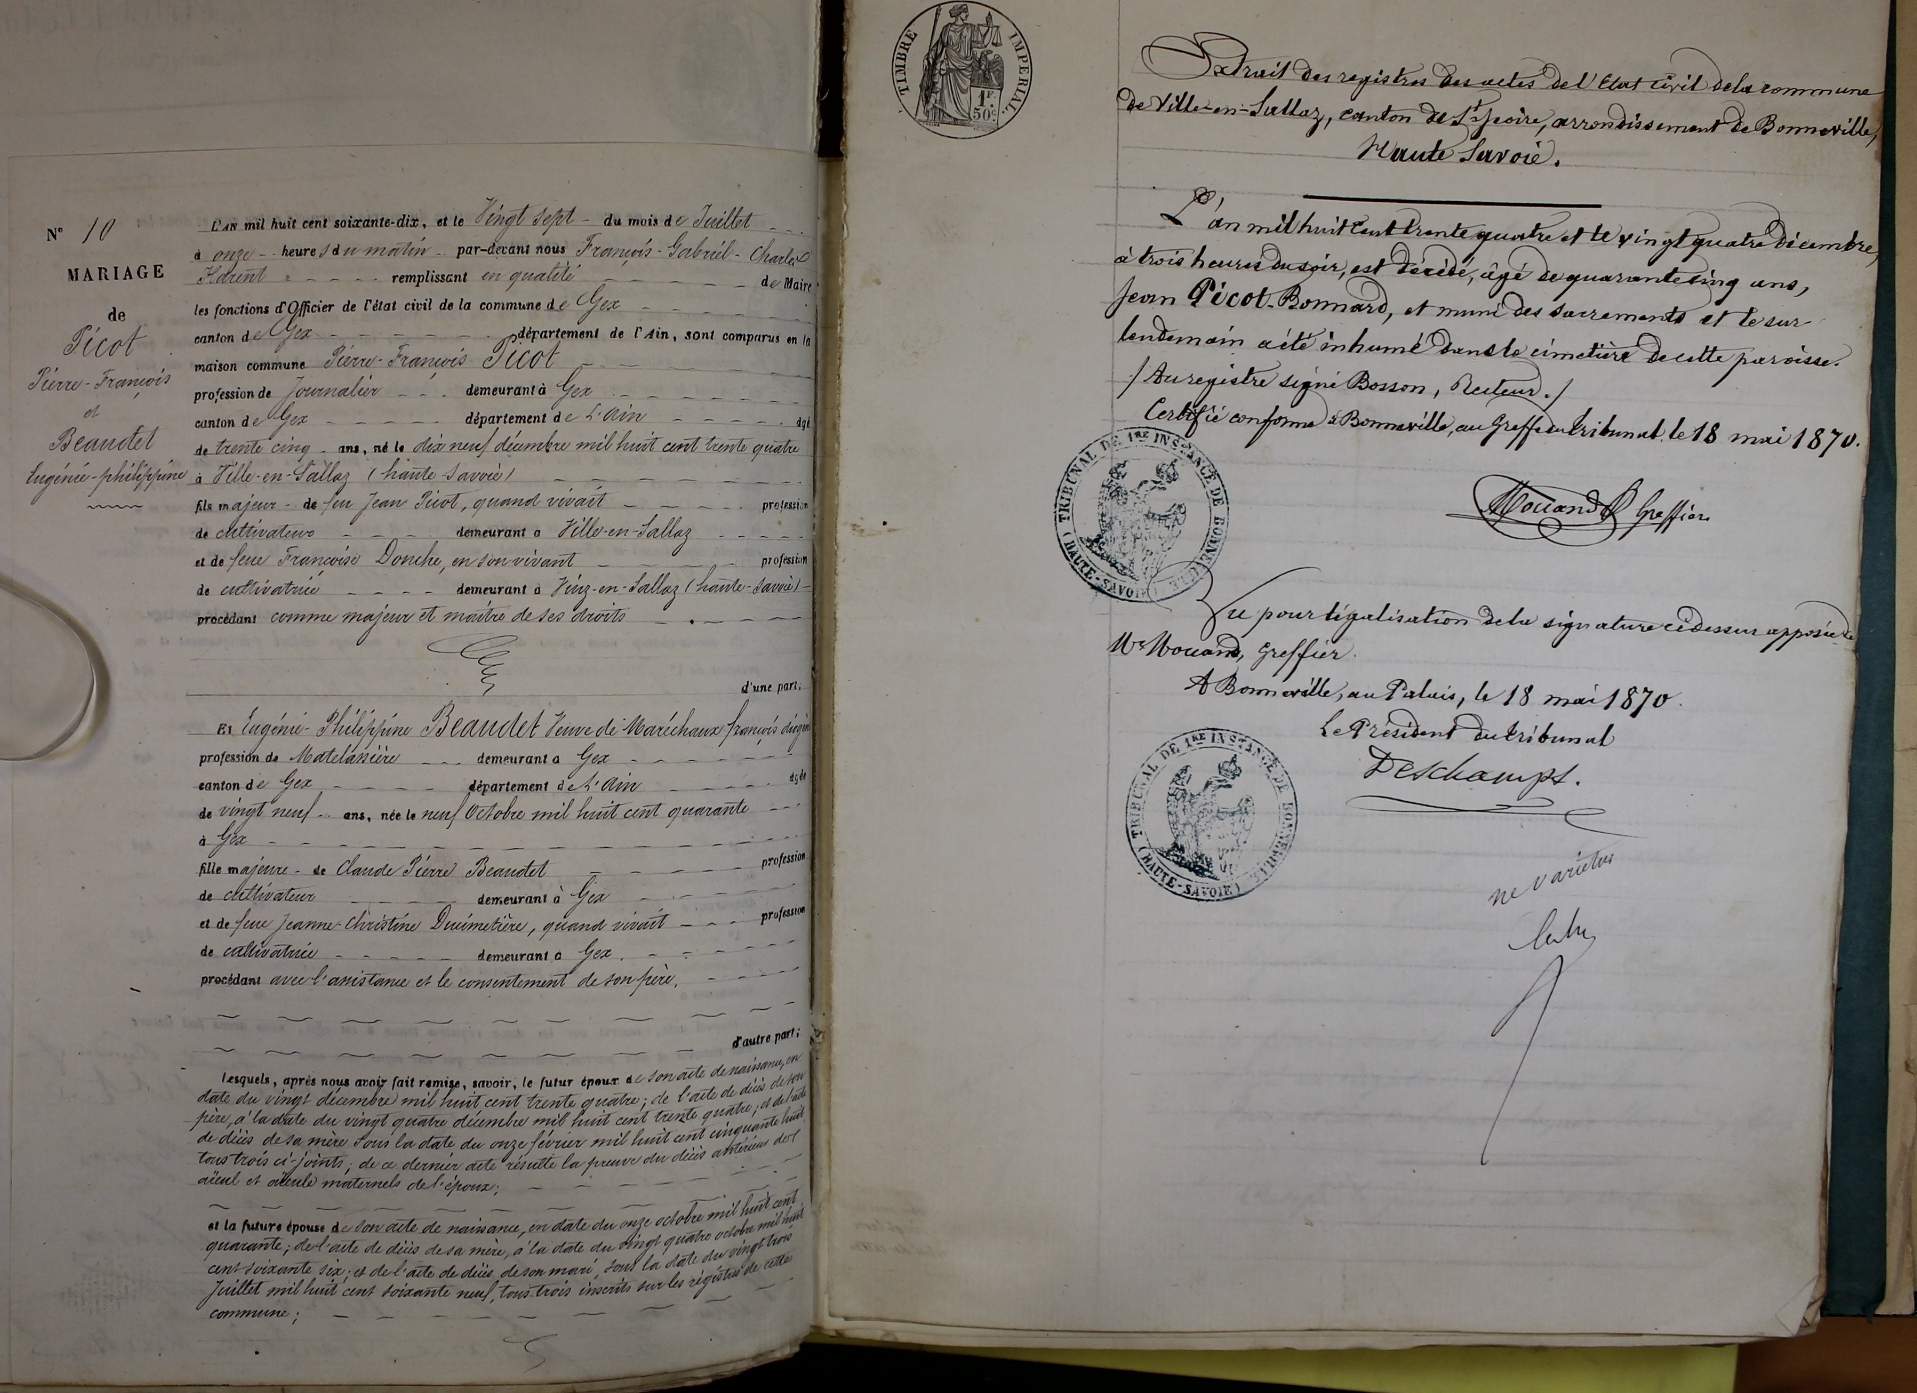 N° 10
MARIAGE
de
Picot
Pierre-François
et
Beaudet
Eugénie-philippine
L'AN mil huit cent soixante-dix, et le Vingt sept du mois de Juillet
à onze heures du matin par-devant nous François-Gabriel-Charles
remplissant en qualité de Maire
les fonctions d'Officier de l'état civil de la commune de Gex
canton de Gex département de l'Ain, sont comparus en la
maison commune Pierre-François Picot
profession de Journalier demeurant à Gex
canton de Gex département de L'Ain âgé
de trente cinq ans, né le dix neuf décembre mil huit cent trente quatre
à Ville-en-Sallaz (haute Savoie)
fils majeur de feu Jean Picot, quand vivait profession
de cultivateur demeurant à Ville-en-Sallaz
et de feue Françoise Donche, en son vivant profession
de cultivatrice demeurant à Viuz-en-Sallaz (haute-Savoie)
procédant comme majeur et maître de ses droits
d'une part,
Et Eugénie-Philippine Beaudet Veuve de Maréchaux françois
profession de Matelassière demeurant à Gex
canton de Gex département de L'Ain âgée
de vingt neuf ans, née le neuf Octobre mil huit cent quarante
à Gex
fille majeure de Claude Pierre Beaudet profession
de cultivateur demeurant à Gex
et de feue Jeanne-Christine Ducimetière, quand vivait profession
de cultivatrice demeurant à Gex.
procédant avec l'assistance et le consentement de son père.
d'autre part;
Lesquels, après nous avoir fait remise, savoir, le futur époux de son acte de naissance, en
date du vingt décembre mil huit cent trente quatre; de l'acte de décès de son
père, à la date du vingt quatre décembre mil huit cent trente quatre; et de l'acte
de décès de sa mère sous la date du onze février mil huit cent cinquante huit
tous trois ci-joints; de ce dernier acte résulte la preuve du décès antérieur des
aïeul et aïeule maternels de l'époux;
et la future épouse de son acte de naissance, en date du onze octobre mil huit cent
quarante; de l'acte de décès de sa mère, à la date du vingt quatre octobre mil huit
cent soixante six; et de l'acte de décès de son mari, sous la date du vingt trois
Juillet mil huit cent soixante neuf, tous trois inscrits sur les régistres de cette
commune;
TIMBRE IMPERIAL.
1F.
50c.
Extrait des registres des actes de l'Etat civil de la commune
de Ville-en-Sallaz, canton de St Jeoire, arrondissement de Bonneville,
Haute Savoie.
L'an mil huit cent trente quatre et le vingt quatre décembre,
à trois heures du soir, est décédé, âgé de quarante cinq ans,
Jean Picot-Bonnard, et muni des sacrements et le sur
lendemain a été inhumé dans le cimetière de cette paroisse.
/ Au registre signé Bosson, Recteur. /
Certifié conforme à Bonneville, au Greffe du tribunal, le 18 mai 1870.
Mouand Greffier
TRIBUNAL DE 1RE INSTANCE DE BONNEVILLE
(HAUTE-SAVOIE)
Vu pour légalisation de la signature ci dessus apposée de
Mr Mouand, Greffier.
A Bonneville, au Palais, le 18 mai 1870.
Le Président du tribunal
Deschamps.
TRIBUNAL DE 1RE INSTANCE DE BONNEVILLE
(HAUTE-SAVOIE)
ne varietur